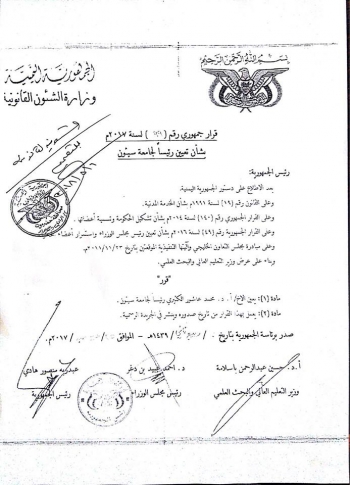 بسم الله الرحمن الرحيم
الجمهورية اليمنية
وزارة الشئون القانونية
قرار جمهوري رقم ( ) لسنة ٢٠١٧م
بشأن تعيين رئيساً لجامعة سيئون
رئيس الجمهورية:
بعد الاطلاع على دستور الجمهورية اليمنية.
وعلى القانون رقم (١٩) لسنة ١٩٩١م بشأن الخدمة المدنية.
وعلى القرار الجمهوري رقم (١٤٠) لسنة ٢٠١٤م بشأن تشكيل الحكومة وتسمية أعضائها.
وعلى القرار الجمهوري رقم (٤٩) لسنة ٢٠١٦م بشأن تعيين رئيس مجلس الوزراء واستمرار أعضاء
وعلى مبادرة مجلس التعاون الخليجي وآليتها التنفيذية الموقعتين بتاريخ ٢٠١١/١١/٢٣م.
وبناء على عرض وزير التعليم العالي والبحث العلمي
"قرر"
مادة (١): يعين الأخ/ أ.د. محمد عاشور الكثيري رئيساً لجامعة سيئون.
مادة (٢): يعمل بهذا القرار من تاريخ صدوره وينشر في الجريدة الرسمية.
صدر برئاسة الجمهورية بتاريخ / / ١٤٣٩هـ - الموافق / / ٢٠١٧م.
أ.د. حسين عبدالرحمن باسلامة
د. أحمد عبيد بن دغر
عبدربه منصور هادي
وزير التعليم العالي والبحث العلمي
رئيس مجلس الوزراء
رئيس الجمهورية